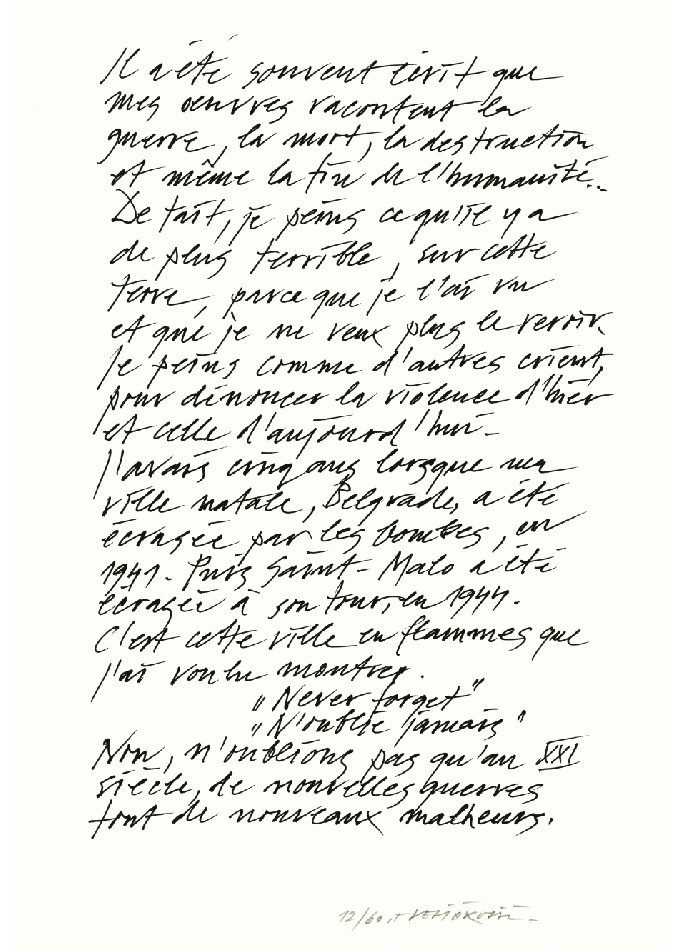 Il a été souvent écrit que
mes oeuvres racontent la
guerre, la mort, la destruction
et même la fin de l'humanité..
De fait, je peins ce qu'il y a
de plus terrible, sur cette
terre, parce que je l'ai vu
et que je ne veux plus le revoir.
Je peins comme d'autres crient,
pour dénoncer la violence d'hier
et celle d'aujourd'hui -
J'avais cinq ans lorsque ma
ville natale, Belgrade, a été
écrasée par les bombes, en
1941. Puis Saint-Malo a été
écrasée à son tour, en 1944.
C'est cette ville en flammes que
j'ai voulu montrer.
"Never forget"
"N'oublie jamais"
Non, n'oublions pas qu'au XXI
siècle, de nouvelles guerres
font de nouveaux malheurs.
12/60